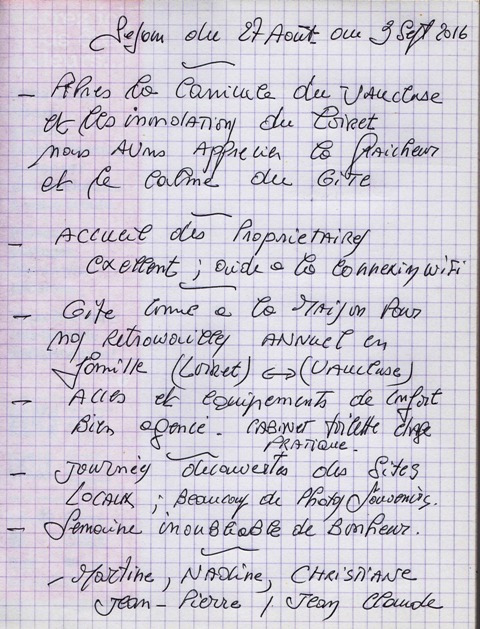 Sejour du 27 Août au 3 Sept 2016
- Après la Canicule du VAUCluse
et les innolation du Loiret
nous AVons Apprecier la fraicheur
et le calme du GiTe
- ACCUEil des Proprietaires
Exellent ; aide a la connexion wifi
- Gite comme a la MAison Pour
nos Retrouvailles ANNUEL en
famille (Loiret) ↔ (VAUCluse)
- Acces et equipements de confort
Bien agencé. CABINET toilette etage
PRATIQUE.
- journées découvertes des Sites
LOCAUX ; Beaucoup de Photos Souvenirs.
- Semaine inoubliable de Bonheur.
- Martine, NADine, CHRISTIANE
Jean-Pierre / Jean Claude